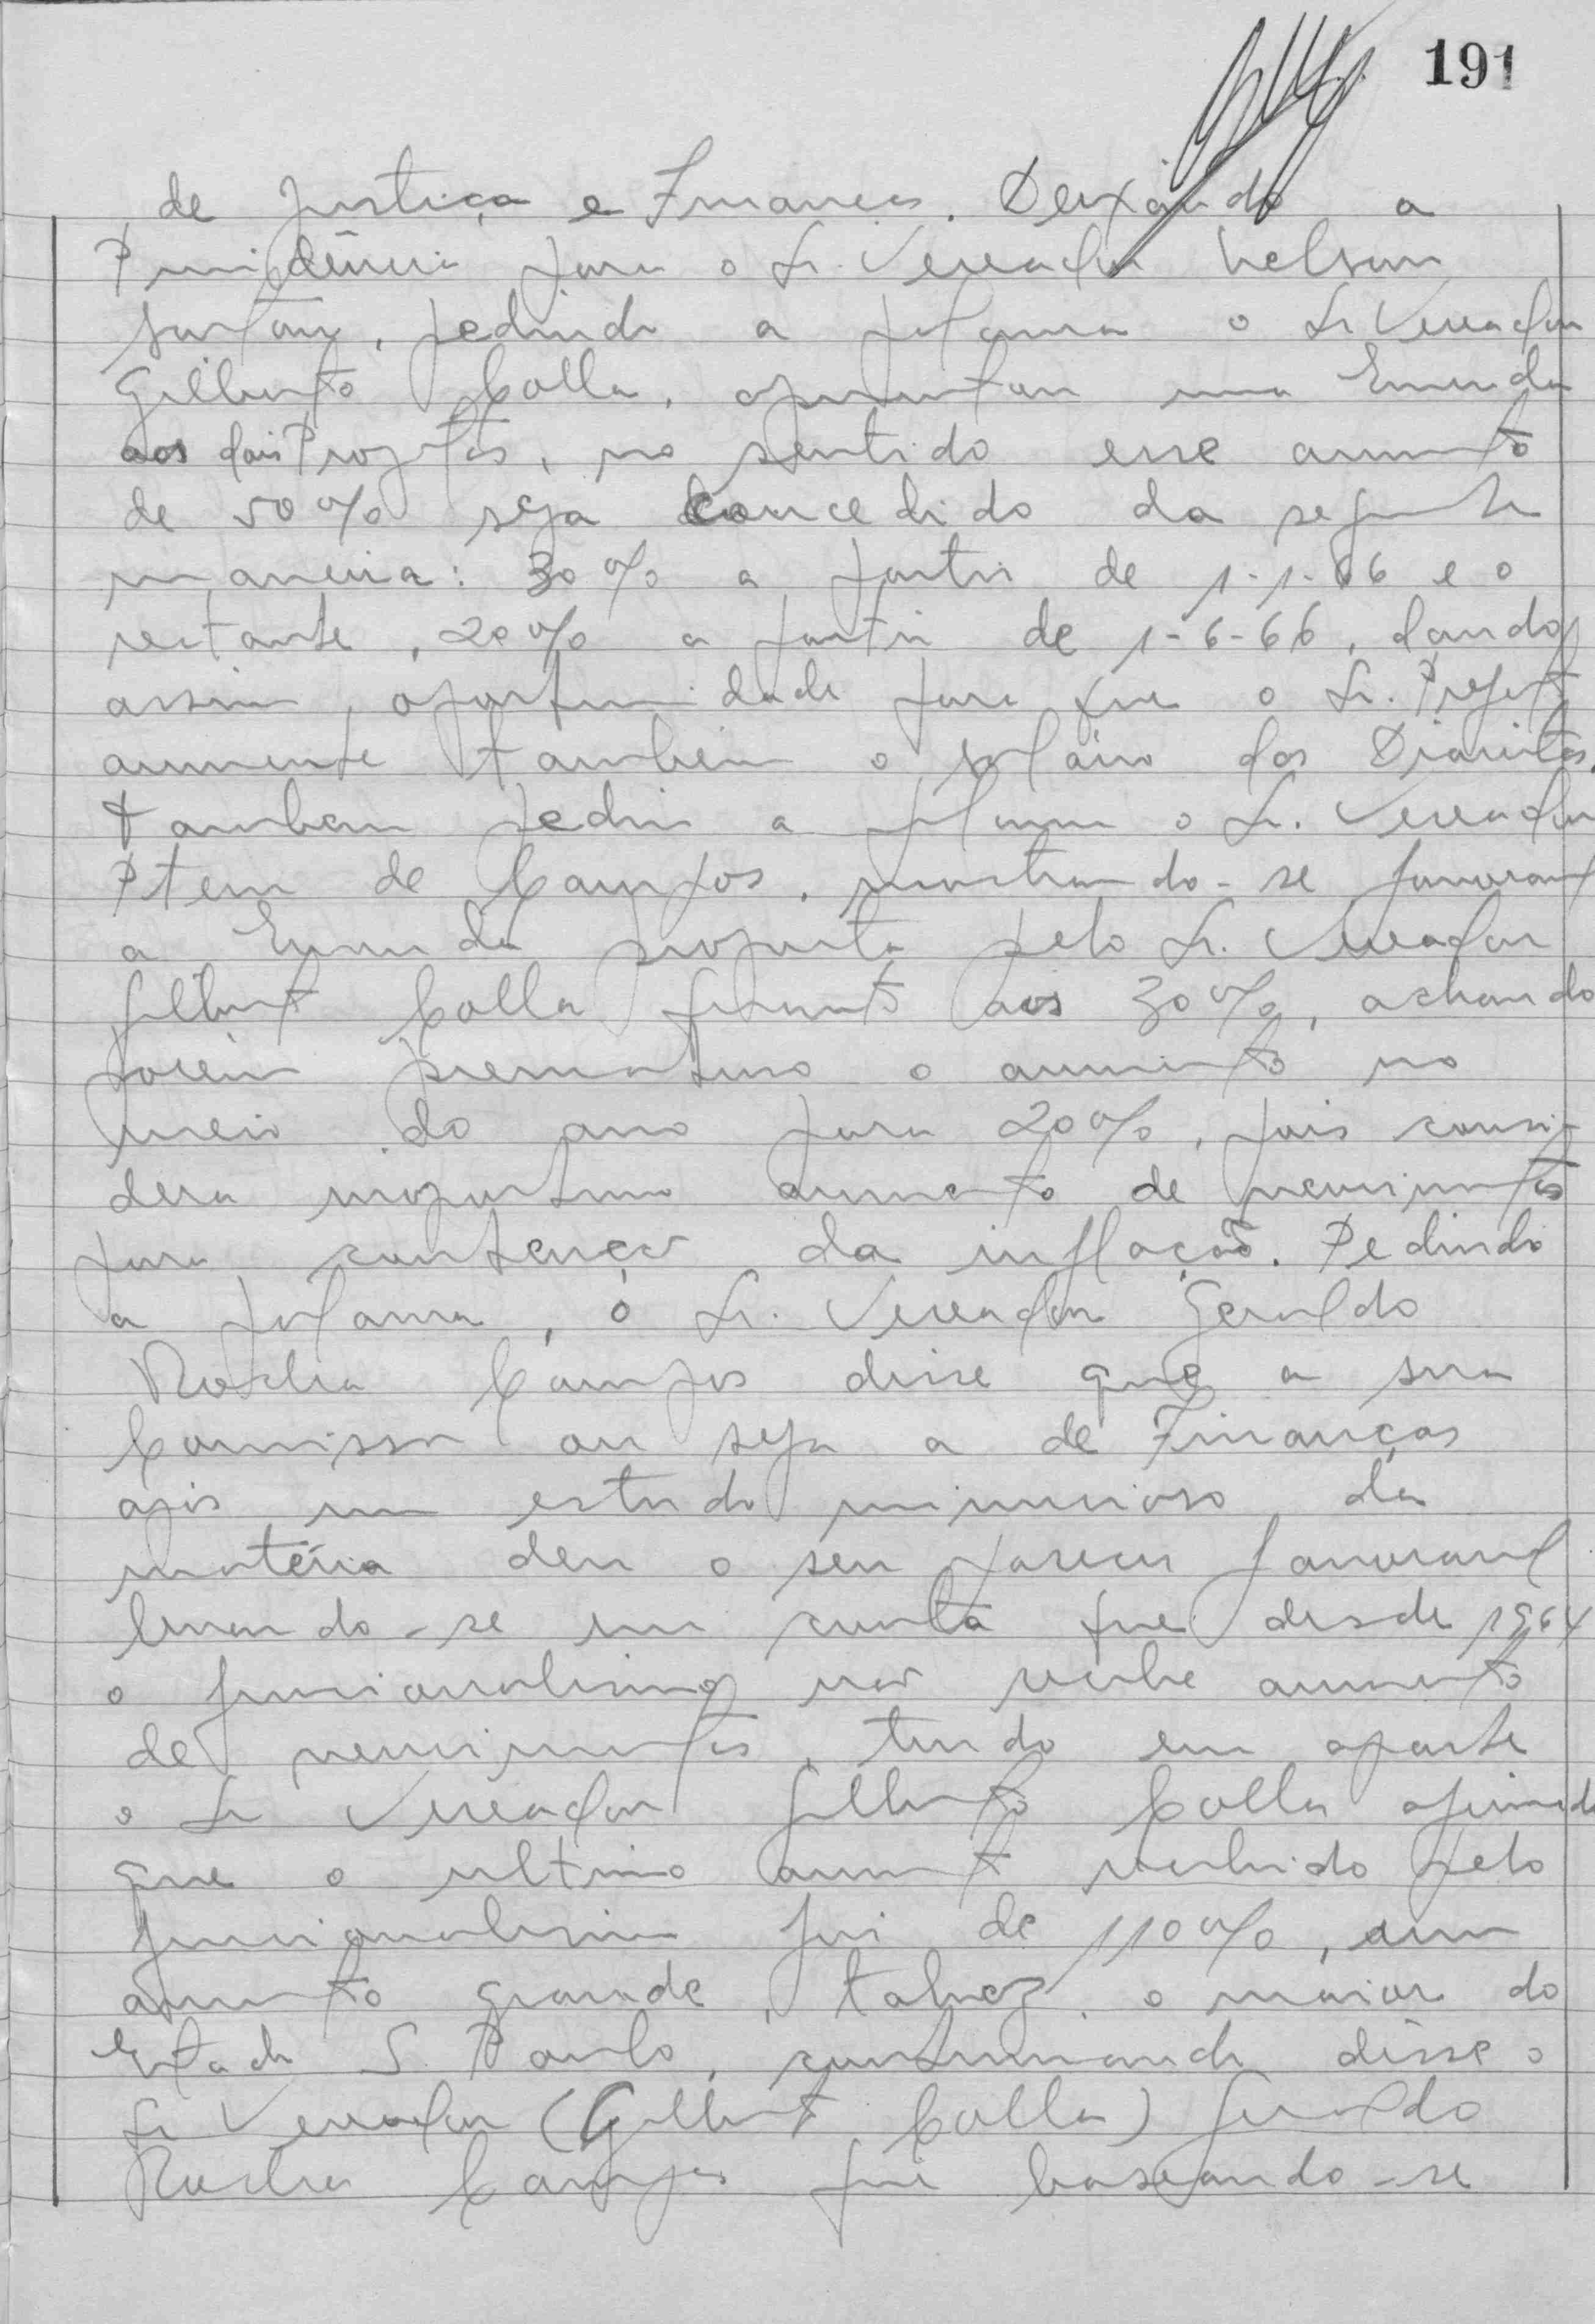 191
de Justiça e Finanças. Deixando a
Presidência para o Sr. Vereador Nelson
pedindo a palavra o Sr Vereador
Gilberto Colla, apresentou uma Emenda
aos dois Projetos, no sentido esse aumento
de 50% seja concedido da seguinte
maneira: 30% a partir de 1-1-66 e o
restante, 20% a partir de 1-6-66, dando
assim oportunidade para que o Sr. Prefeito
aumente tambem o salário dos Diaristas.
Tambem pediu a palavra o Sr. Vereador
de Campos, mostrando-se favoravel
a Emenda proposta pelo Sr. Vereador
Gilberto Colla quanto aos 30%, achando
porém prematuro o aumento no
meio do ano para 20%, pois consi-
dera inoportuno aumento de vencimentos
para contenção da inflação. Pedindo
a palavra, o Sr. Vereador Geraldo
Rocha Campos disse que a sua
Comissão ou seja a de Finanças
após um estudo minucioso da
matéria deu o seu parecer favoravel
levando-se em conta que desde 1964
o funcionalismo não recebe aumento
de vencimentos, tendo em aparte
o Sr Vereador Gilberto Colla afirmado
que o ultimo aumento recebido pelo
funcionalismo foi de 110%, um
aumento grande, talvez o maior do
Estado S. Paulo, continuando disse o
Sr Vereador (Gilberto Colla) Geraldo
Rocha Campos que baseando-se